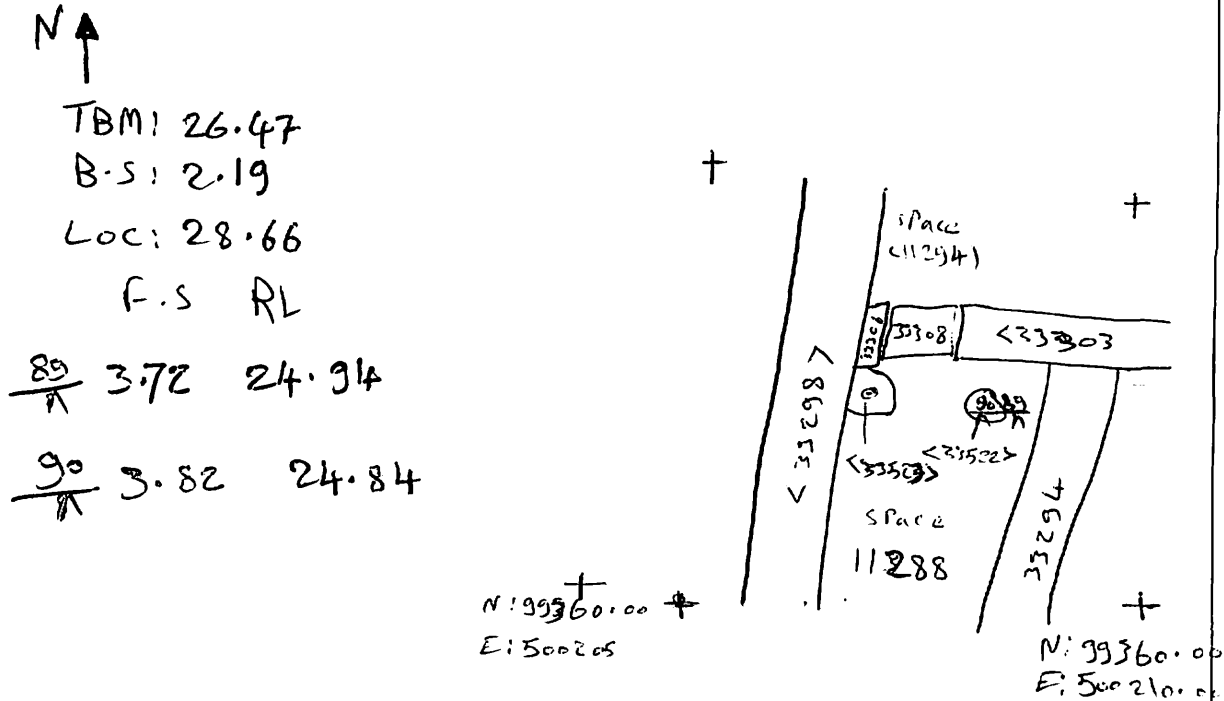 N
TBM: 26.47
B.S: 2.19
Loc: 28.66
F.S RL
89 3.72 24.94
90 3.82 24.84
space
<11294>
33308
<33303
<33298>
90 89
<33522>
space
11288
33294
N: 99360.00
E: 500205
N: 99360.00
E: 500210.00